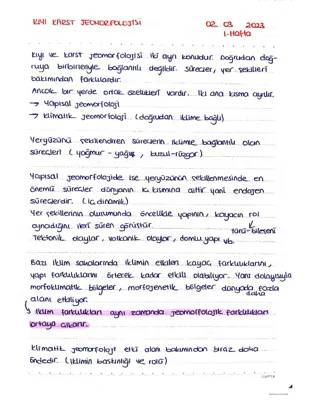 KIYI KARST JEOMORFOLOJİSİ 02. 03. 2023
1. Hafta
Kıyı ve karst jeomorfolojisi iki ayrı konudur. Doğrudan doğ-
ruya birbirleriyle bağlantılı değildir. süreçler, yer şekilleri
bakımından farklılardır.
Ancak bir yerde ortak özellikleri vardır. İki ana kısma ayrılır.
→ Yapısal jeomorfoloji
→ Klimatik jeomorfoloji (doğrudan iklime bağlı)
Yeryüzünü şekillendiren süreçlerin iklimle bağlantılı olan
süreçleri (yağmur - yağış, buzul-rüzgar)
Yapısal jeomorfolojide ise yeryüzünün şekillenmesinde en
önemli süreçler dünyanın iç kısmına aittir yani endojen
süreçlerdir. (iç dinamik)
Yer şekillerinin oluşumunda öncelikle yapının, kayacın rol
oynadığını ileri süren görüştür. türü-bileşeni
Tektonik olaylar, volkanik olaylar, domlu yapı vb.
Bazı iklim sahalarında iklimin etkileri kayaç farklılıklarını,
yapı farklılıklarını örtecek kadar etkili olabiliyor. Yani dolayısıyla
morfoklimatik bölgeler, morfojenetik bölgeler dünyada fazla
alanı etkiliyor. daha
İklim farklılıkları aynı zamanda jeomorfolojik farklılıkları
ortaya çıkarır.
Klimatik jeomorfoloji etki alanı bakımından biraz daha
öndedir. (iklimin baskınlığı ve rolü)